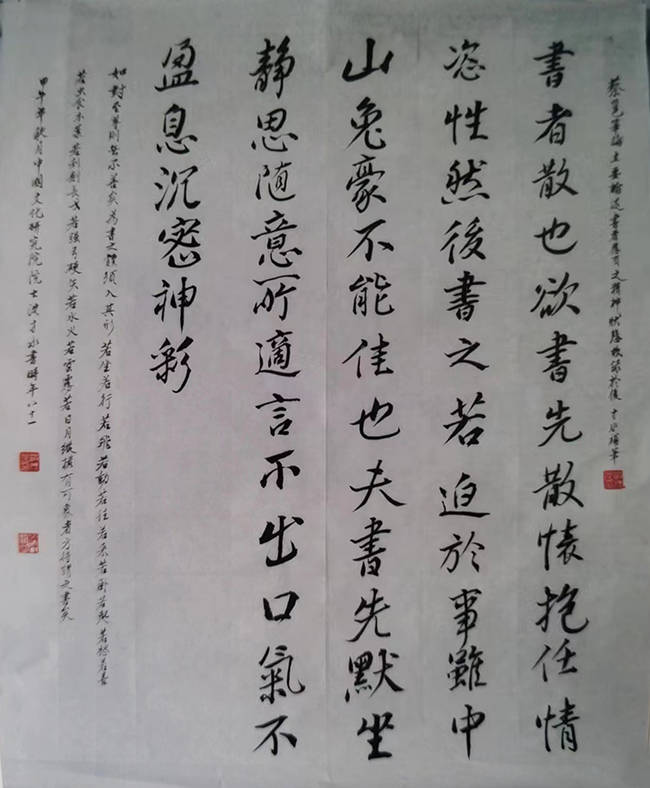 蔡邕筆論主要論述書者應有之精神狀態故節於後 補筆
書者散也欲書先散懷抱任情
恣性然後書之若迫於事雖中
山兔豪不能佳也夫書先默坐
静思随意所適言不出口氣不
盈息沉密神彩
如對至尊則無不善矣為書之體須入其形若坐若行若飛若動若往若來若卧若起若愁若喜
若虫食木葉若利劍長戈若強弓硬矢若水火若雲霧若日月縱橫有可象者方得謂之書矣
甲午年秋月中國文化研究院院士才水書時年八十一